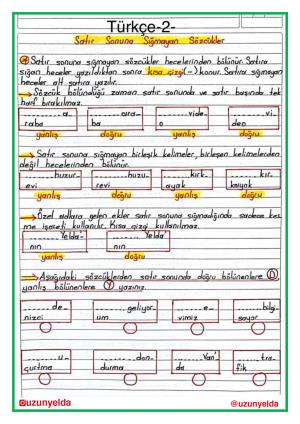 Türkçe-2-
Satır Sonuna Sığmayan Sözcükler
Satır sonuna sığmayan sözcükler hecelerinden bölünür. Satıra
sığan heceler yazıldıktan sonra kısa çizgi (-) konur. Satıra sığmayan
heceler alt satıra yazılır.
Sözcük bölündüğü zaman satır sonunda ve satır başında tek
harf bırakılmaz.
........a- ........ara- ........vide- ........vi-
raba ba o den
yanlış doğru yanlış doğru
Satır sonuna sığmayan birleşik kelimeler, birleşen kelimelerden
değil hecelerinden bölünür.
........huzur- ........huzu- ........kırk- ........kır-
evi revi ayak kayak
yanlış doğru yanlış doğru
Özel adlara gelen ekler satır sonuna sığmadığında sadece kes-
me işareti kullanılır. Kısa çizgi kullanılmaz.
........Yelda'- ........Yelda'
nın nın
yanlış doğru
Aşağıdaki sözcüklerden satır sonunda doğru bölünenlere D,
yanlış bölünenlere Y yazınız.
........de- ........geliyor- ........e- ........bilg-
nizci um vimiz sayar
........u- ........don- ........Van' ........tra-
çurtma durma da fik
@uzunyelda @uzunyelda